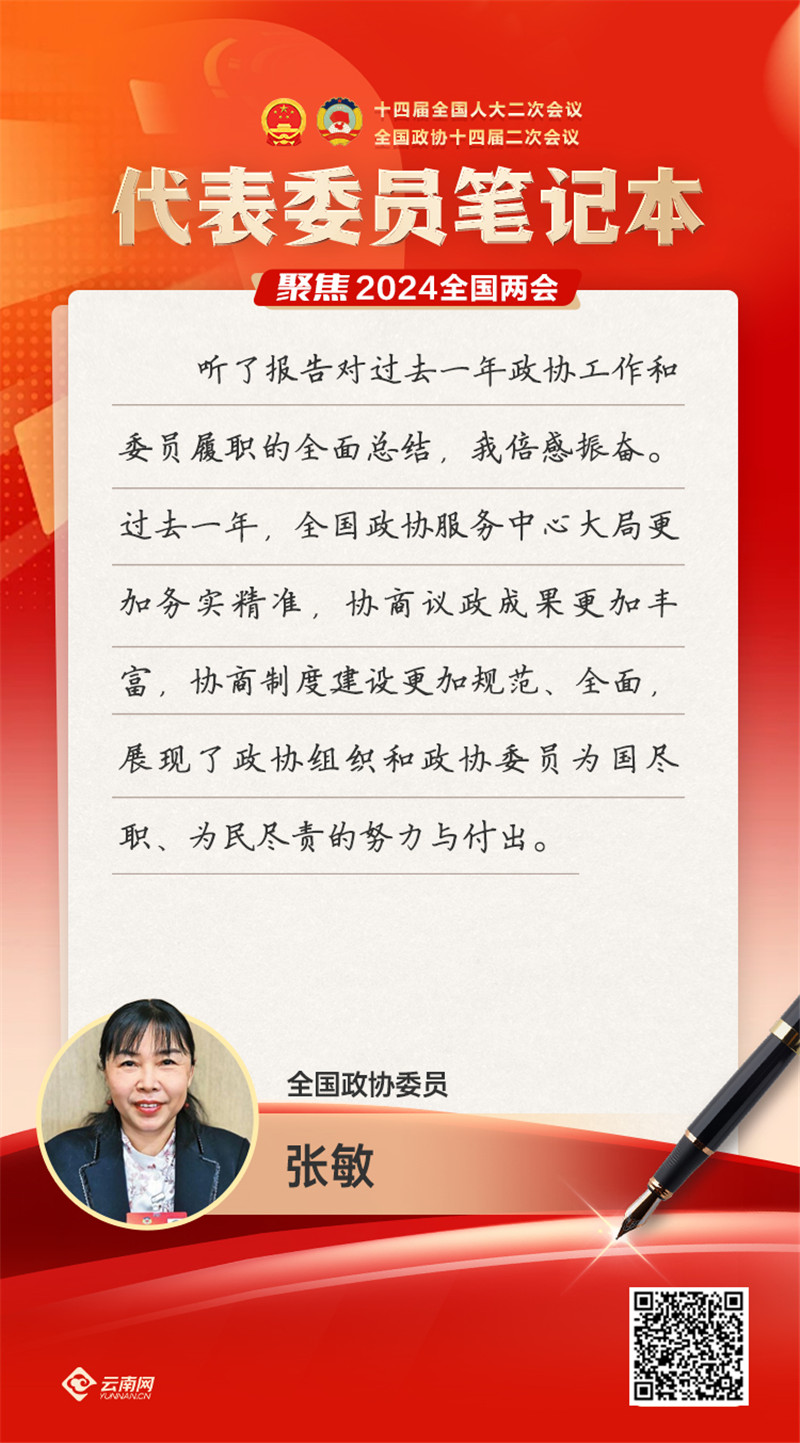 十四届全国人大二次会议
全国政协十四届二次会议
代表委员笔记本
聚焦2024全国两会
听了报告对过去一年政协工作和
委员履职的全面总结，我倍感振奋。
过去一年，全国政协服务中心大局更
加务实精准，协商议政成果更加丰
富，协商制度建设更加规范、全面，
展现了政协组织和政协委员为国尽
职、为民尽责的努力与付出。
全国政协委员
张敏
云南网
YUNNAN.CN